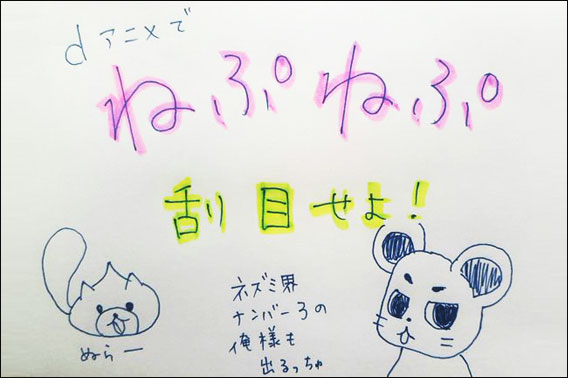 dアニメで
ねぷねぷ
刮目せよ!
ネズミ界
ナンバー3の
俺様も
出るっちゃ
ぬらー